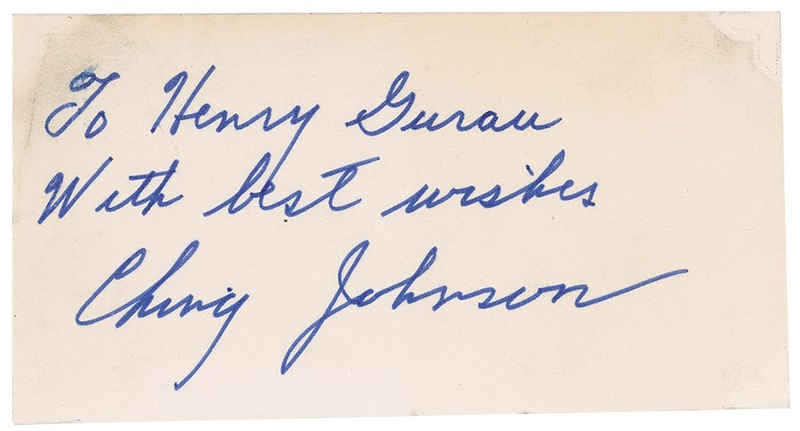 To Henry Gurau
With best wishes
Ching Johnson